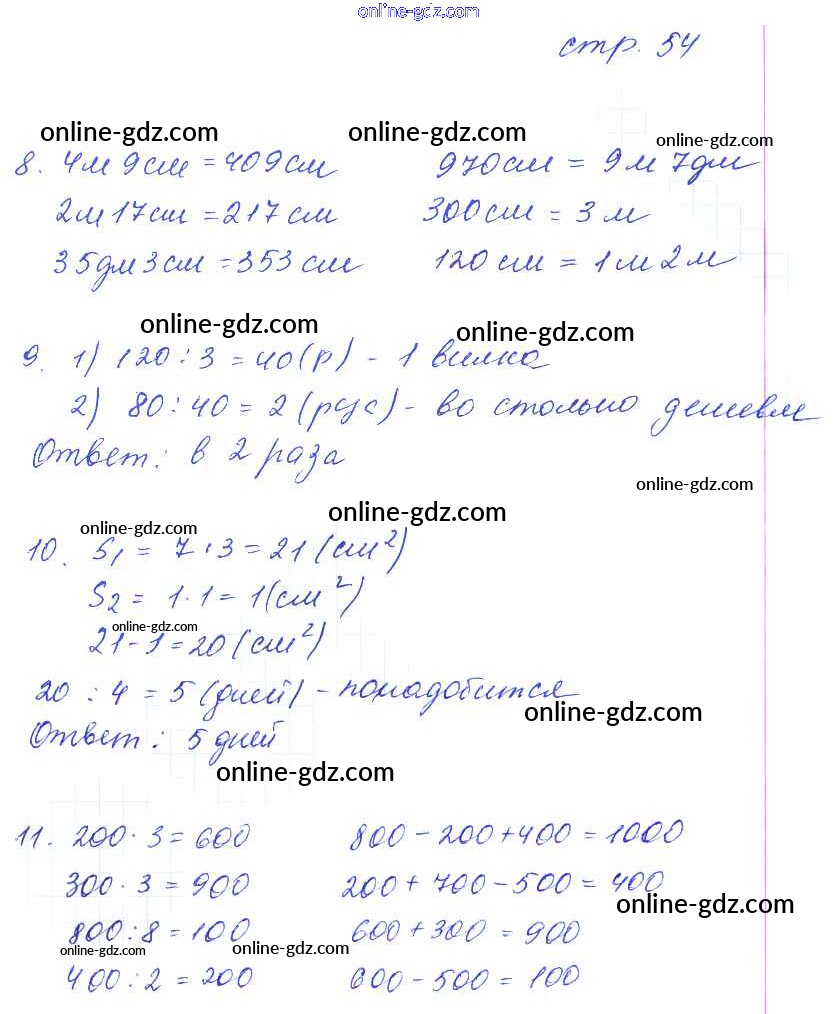 online-gdz.com
стр. 54
online-gdz.com online-gdz.com online-gdz.com
8. 4м 9см = 409см 970см = 9м 7дм
2м 17см = 217см 300см = 3м
35дм 3см = 353см 120см = 1м 2м
online-gdz.com online-gdz.com
9. 1) 120 : 3 = 40(р) - 1 вилка
2) 80 : 40 = 2 (рус) - во столько дешевле
Ответ: в 2 раза
online-gdz.com
online-gdz.com
online-gdz.com
10. S₁ = 7 · 3 = 21 (см²)
S₂ = 1 · 1 = 1 (см²)
online-gdz.com
21 - 1 = 20 (см²)
20 : 4 = 5 (дней) - понадобится
online-gdz.com
Ответ: 5 дней
online-gdz.com
11. 200 · 3 = 600 800 - 200 + 400 = 1000
300 · 3 = 900 200 + 700 - 500 = 400
online-gdz.com
800 : 8 = 100 600 + 300 = 900
online-gdz.com online-gdz.com
400 : 2 = 200 600 - 500 = 100